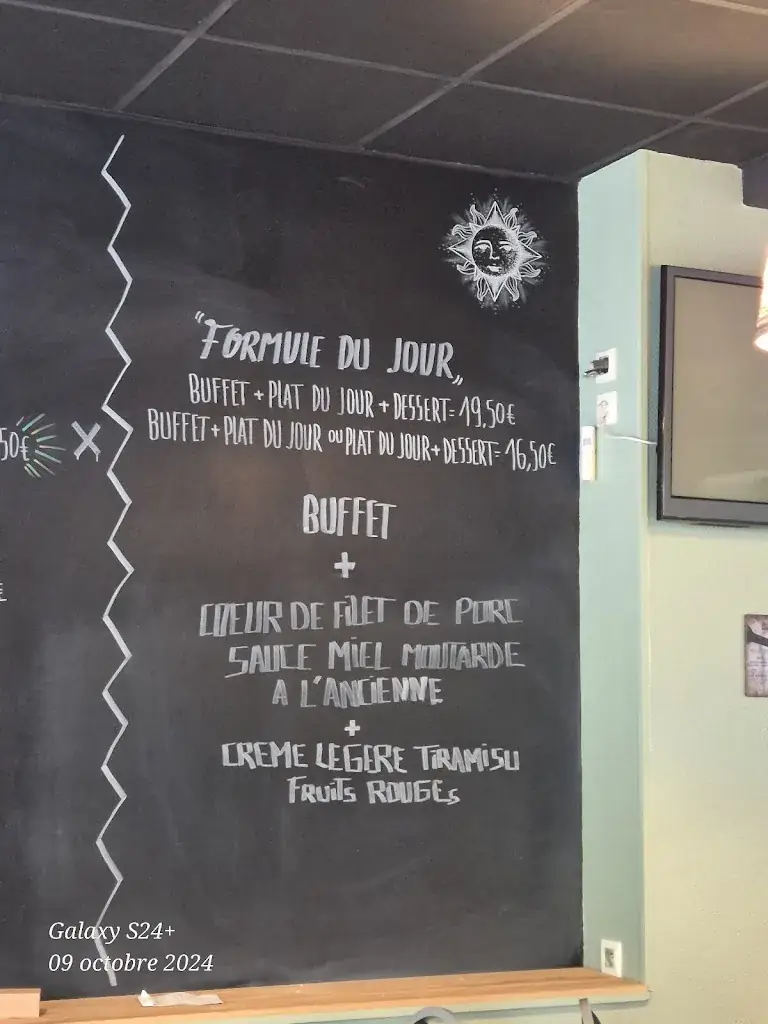 "FORMULE DU JOUR"
BUFFET + PLAT DU JOUR + DESSERT= 19,50€
BUFFET + PLAT DU JOUR OU PLAT DU JOUR + DESSERT= 16,50€
50€
BUFFET
+
COEUR DE FILET DE PORC
SAUCE MIEL MOUTARDE
A L'ANCIENNE
+
CREME LEGERE TIRAMISU
FRUITS ROUGES
Galaxy S24+
09 octobre 2024